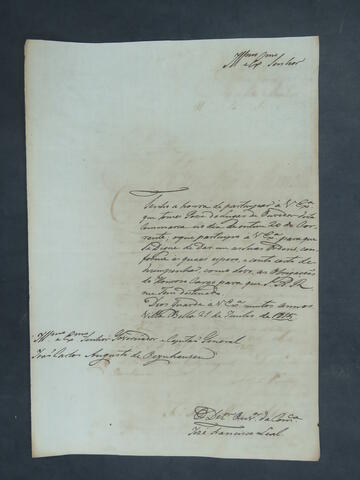 Illmo e Exmo Senhor
Tenho a honra de participar a V. Exa
que tomei Posse do Lugar de Ouvidor desta
Commarca no dia de ontem 20 do Cor-
rente, o que participo a V. Exa para que
se Digne de dar-me as suas Ordens, con-
forme as quaes espero, e conto certo de-
zempenhar, como devo, as Obrigaçoens
do Honrozo Cargo para que S. A. R.
me tem destinado.
Deos Guarde a V. Exa muitos annos
Villa Bella 21 de Junho de 1815
Illmo e Exmo Senhor Governador e Capitão General
João Carlos Augusto de Oeynhausen
O Dor Ouvor da Comca
José Francisco Leal